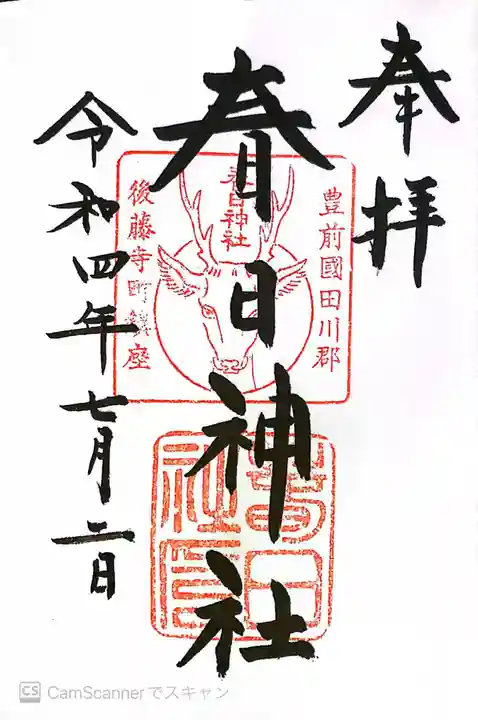 奉拝
豊前國田川郡
春日神社
春日神社
後藤寺町鎮座
春日
社印
令和四年七月二日
CS CamScannerでスキャン